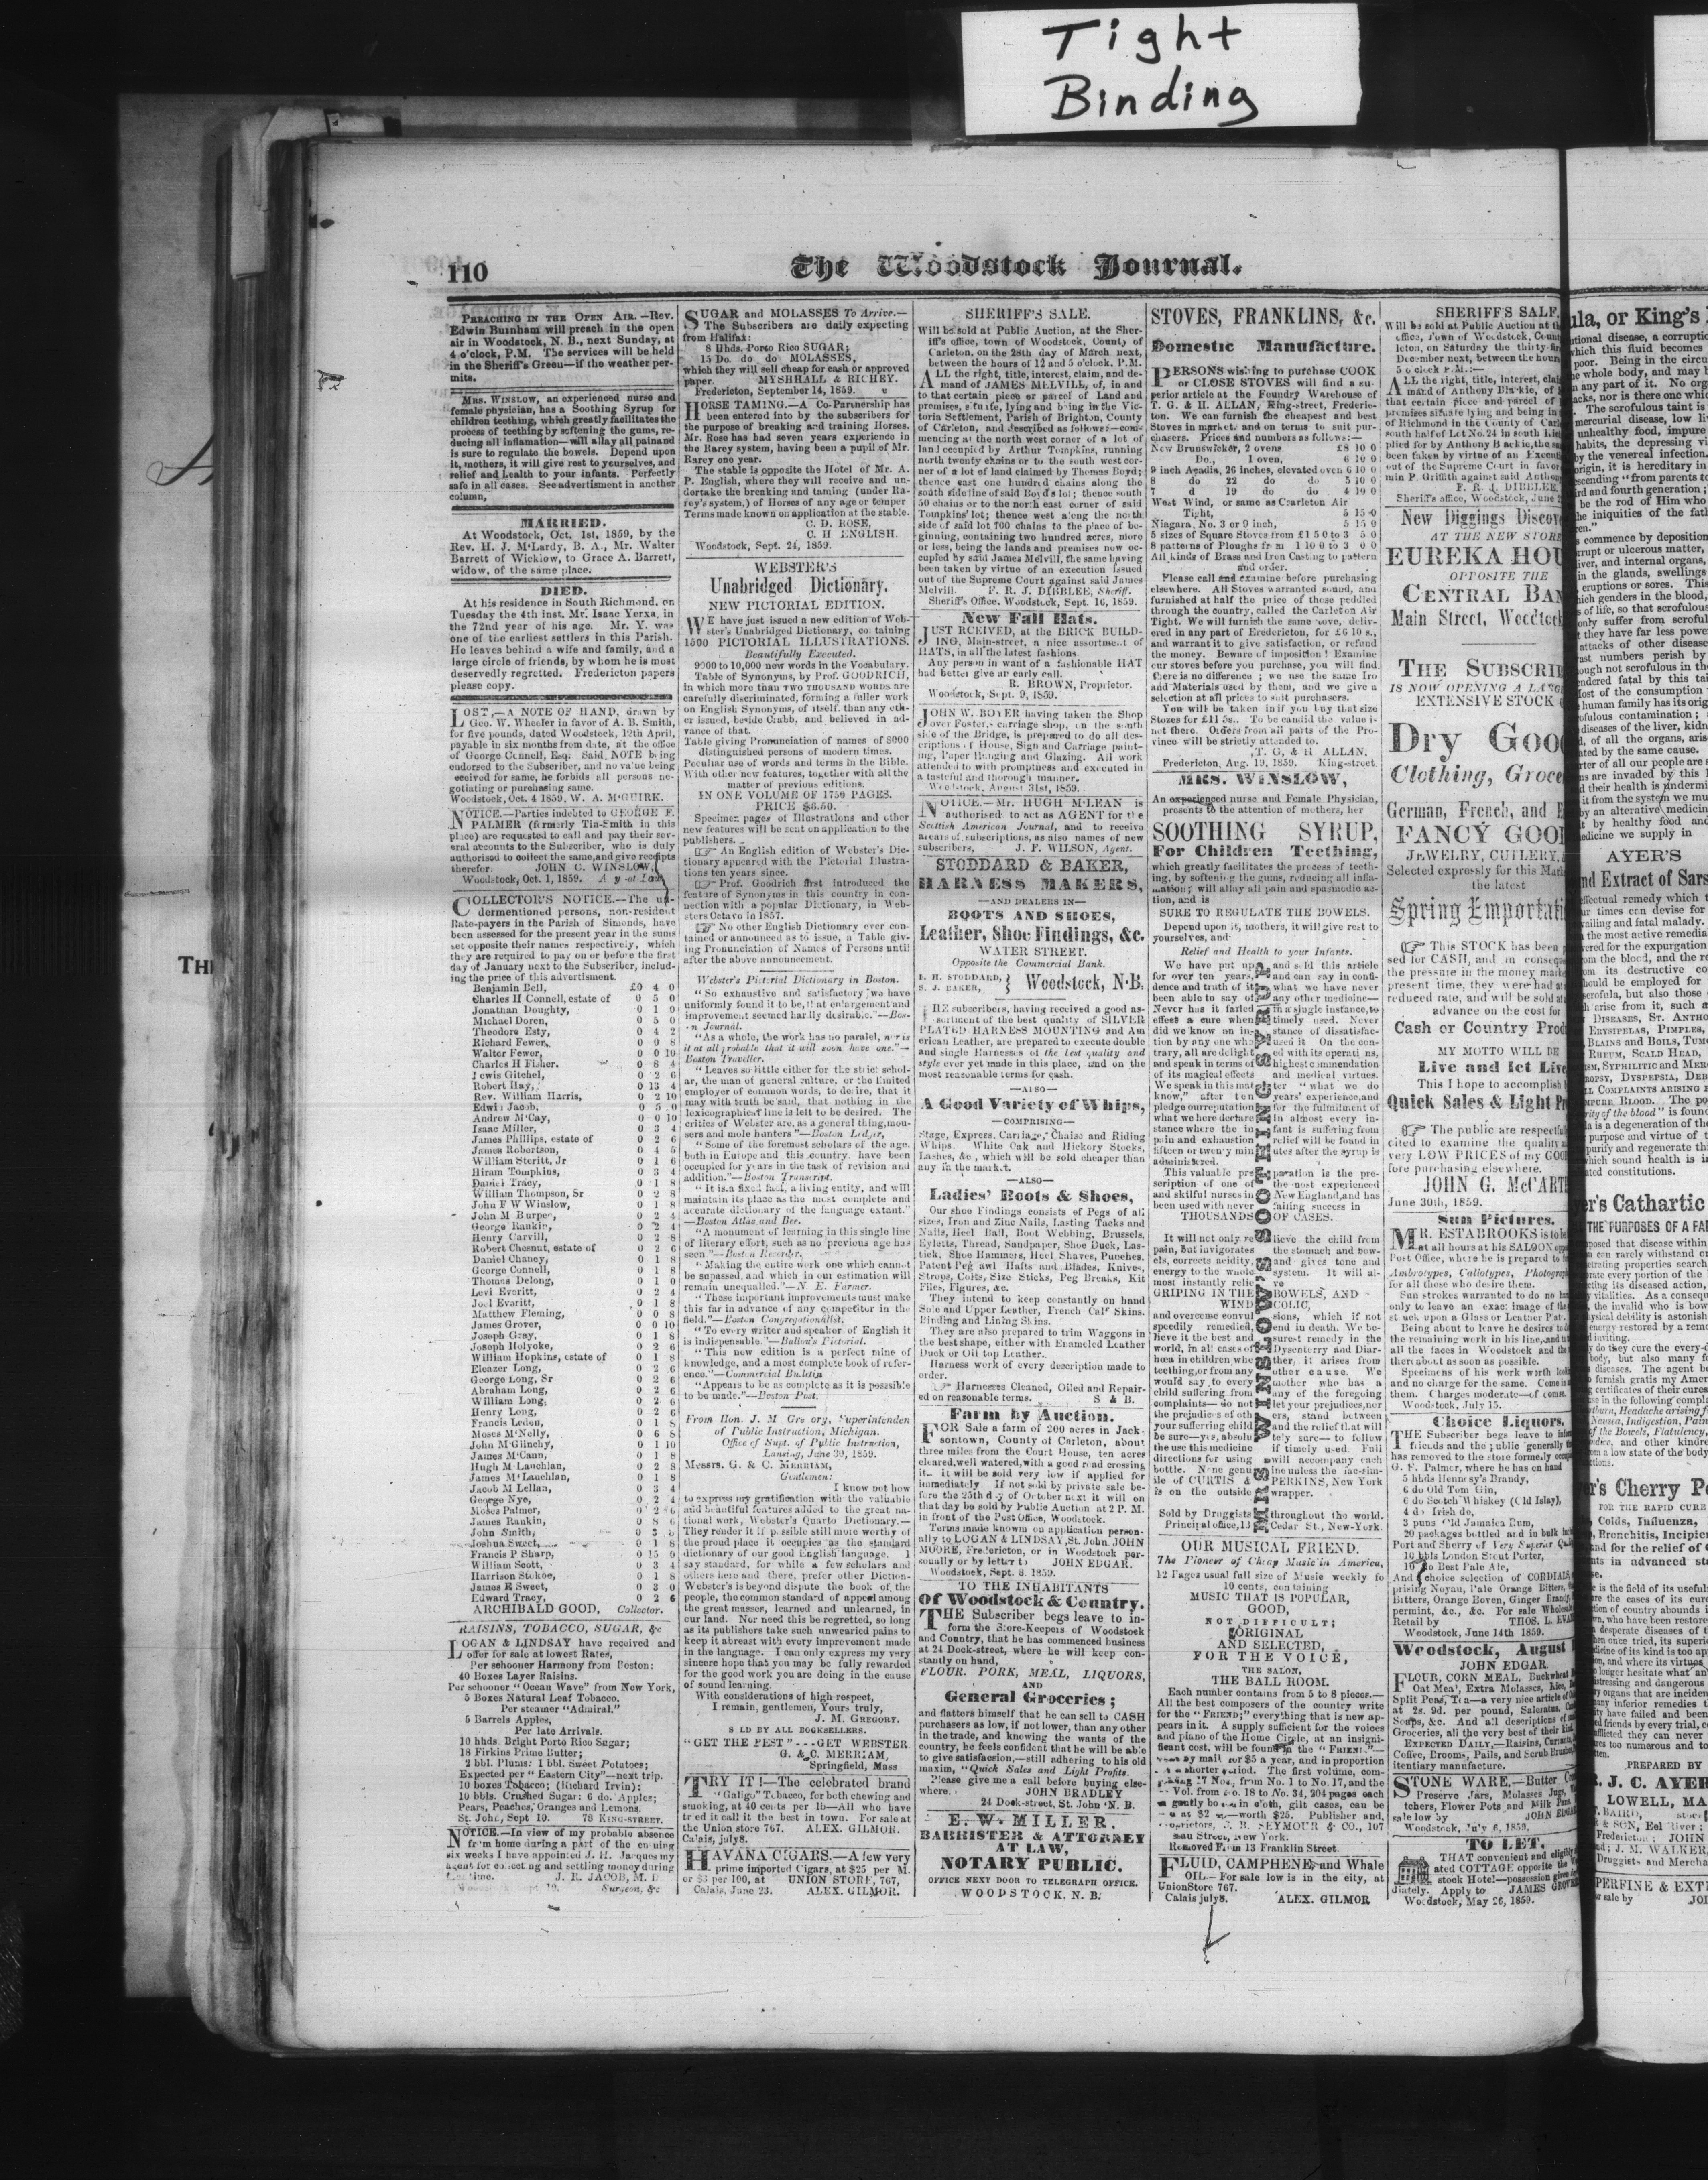 Tight
Binding
110
The Woodstock Journal.
PREACHING IN THE OPEN AIR.—Rev.
Edwin Burnham will preach in the open
air in Woodstock, N. B., next Sunday, at
4 o'clock, P.M. The services will be held
in the Sheriff's Green—if the weather per-
mits.
MRS. WINSLOW, an experienced nurse and
female physician, has a Soothing Syrup for
children teething, which greatly facilitates the
process of teething by softening the gums, re-
ducing all inflamation—will allay all pain and
is sure to regulate the bowels. Depend upon
it, mothers, it will give rest to yourselves, and
relief and health to your infants. Perfectly
safe in all cases. See advertisment in another
column.
MARRIED.
At Woodstock, Oct. 1st, 1859, by the
Rev. H. J. M'Lardy, B. A., Mr. Walter
Barrett of Wicklow, to Grace A. Barrett,
widow, of the same place.
DIED.
At his residence in South Richmond, on
Tuesday the 4th inst, Mr. Isaac Yerxa, in
the 72nd year of his age. Mr. Y. was
one of the earliest settlers in this Parish.
He leaves behind a wife and family, and a
large circle of friends, by whom he is most
deservedly regretted. Fredericton papers
please copy.
LOST,—A NOTE OF HAND, drawn by
Geo. W. Wheeler in favor of A. B. Smith,
for five pounds, dated Woodstock, 12th April,
payable in six months from date, at the office
of George Connell, Esq. Said NOTE being
endorsed to the Subscriber, and no value being
received for same, he forbids all persons ne-
gotiating or purchasing same.
Woodstock, Oct. 4 1859. W. A. M'GUIRK.
NOTICE.—Parties indebted to GEORGE F.
PALMER (formerly Tin-Smith in this
place) are requested to call and pay their sev-
eral accounts to the Subscriber, who is duly
authorised to collect the same, and give receipts
therefor. JOHN C. WINSLOW,
Woodstock, Oct. 1, 1859.
COLLECTOR'S NOTICE.—The un-
dermentioned persons, non-resident
Rate-payers in the Parish of Simonds, have
been assessed for the present year in the sums
set opposite their names respectively, which
they are required to pay on or before the first
day of January next to the Subscriber, includ-
ing the price of this advertisment.
Benjamin Bell, £0 4 0
Charles H Connell, estate of 0 5 0
Jonathan Doughty, 0 1 0
Michael Doren, 0 5 0
Theodore Esty, 0 4 2
Richard Fewer, 0 0 8
Walter Fewer, 0 0 10
Charles H Fisher. 0 8 4
Lewis Gitchel, 0 2 6
Robert Hay, 0 13 4
Rev. William Harris, 0 2 10
Edwin Jacob, 0 5 0
Andrew M'Cay, 0 0 10
Isaac Miller, 0 3 4
James Phillips, estate of 0 2 6
James Robertson, 0 4 5
William Steritt, Jr 0 1 6
Hiram Tompkins, 0 3 4
Daniel Tracy, 0 1 8
William Thompson, Sr 0 2 8
John F W Winslow, 0 1 8
John M Burpee, 0 2 4
George Rankin, 0 2 4
Henry Carvill, 0 2 8
Robert Chesnut, estate of 0 2 6
Daniel Chaney, 0 1 8
George Connell, 0 1 8
Thomas Delong, 0 1 0
Levi Everitt, 0 2 4
Joel Everitt, 0 1 8
Matthew Fleming, 0 0 8
James Grover, 0 0 10
Joseph Gray, 0 1 8
Joseph Holyoke, 0 2 6
William Hopkins, estate of 0 1 8
Eleazer Long, 0 2 6
George Long, Sr 0 2 6
Abraham Long, 0 2 6
William Long, 0 2 6
Henry Long, 0 2 6
Francis Leden, 0 1 8
Moses M'Nelly, 0 6 8
John M'Glinchy, 0 1 10
James M'Cann, 0 1 8
Hugh M'Lauchlan, 0 2 8
James M'Lauchlan, 0 1 8
Jacob M Lellan, 0 3 4
George Nye, 0 2 4
Moses Palmer, 0 2 6
James Rankin, 0 8 6
John Smith,
Joshua Sweet, 0 1 8
Francis P Sharp, 0 15 0
William Scott, 0 3 4
Harrison Stokoe, 0 1 8
James E Sweet, 0 3 0
Edward Tracy, 0 2 6
ARCHIBALD GOOD, Collector.
RAISINS, TOBACCO, SUGAR, &c
LOGAN & LINDSAY have received and
offer for sale at lowest Rates,
Per schooner Harmony from Boston:
40 Boxes Layer Raisins.
Per schooner "Ocean Wave" from New York,
5 Boxes Natural Leaf Tobacco.
Per steamer "Admiral."
5 Barrels Apples,
Per late Arrivals.
10 hhds. Bright Porto Rico Sugar;
18 Firkins Prime Butter;
2 bbl. Plums: 1 bbl. Sweet Potatoes;
Expected per "Eastern City"—next trip.
10 boxes Tobacco; (Richard Irvin);
10 bbls. Crushed Sugar: 6 do. Apples;
Pears, Peaches, Oranges and Lemons.
St. John, Sept 10. 78 KING-STREET.
NOTICE.—In view of my probable absence
from home during a part of the ensuing
six weeks I have appointed J. H. Jacques my
agent for collecting and settling money during
J. R. JACOB, M. D
Surgeon, &c
SUGAR and MOLASSES To Arrive.—
The Subscribers are daily expecting
from Halifax:
8 Hhds. Porto Rico SUGAR;
15 Do. do do MOLASSES,
which they will sell cheap for cash or approved
paper. MYSHRALL & RICHEY.
Fredericton, September 14, 1859.
HORSE TAMING.—A Co-Partnership has
been entered into by the subscribers for
the purpose of breaking and training Horses.
Mr. Rose has had seven years experience in
the Rarey system, having been a pupil of Mr.
Rarey one year.
The stable is opposite the Hotel of Mr. A.
P. English, where they will receive and un-
dertake the breaking and taming (under Ra-
rey's system,) of Horses of any age or temper
Terms made known on application at the stable.
C. D. ROSE,
C. H ENGLISH.
Woodstock, Sept. 24, 1859.
WEBSTER'S
Unabridged Dictionary.
NEW PICTORIAL EDITION.
WE have just issued a new edition of Web-
ster's Unabridged Dictionary, containing
1500 PICTORIAL ILLUSTRATIONS.
Beautifully Executed.
9000 to 10,000 new words in the Vocabulary.
Table of Synonyms, by Prof. GOODRICH,
in which more than TWO THOUSAND WORDS are
carefully discriminated, forming a fuller work
on English Synonyms, of itself, than any oth-
er issued, beside Crabb, and believed in ad-
vance of that.
Table giving Pronunciation of names of 8000
distinguished persons of modern times.
Peculiar use of words and terms in the Bible.
With other new features, together with all the
matter of previous editions.
IN ONE VOLUME OF 1750 PAGES.
PRICE $6.50.
Specimen pages of Illustrations and other
new features will be sent on application to the
publishers.
An English edition of Webster's Dic-
tionary appeared with the Pictorial Illustra-
tions ten years since.
Prof. Goodrich first introduced the
feature of Synonyms in this country in con-
nection with a popular Dictionary, in Web-
sters Octavo in 1857.
No other English Dictionary ever con-
tained or announced as to issue, a Table giv-
ing Pronunciation of Names of Persons until
after the above announcement.
Webster's Pictorial Dictionary in Boston.
"So exhaustive and satisfactory we have
uniformly found it to be, that enlargement and
improvement seemed hardly desirable."—Bos-
ton Journal.
"As a whole, the work has no paralel, nor is
it at all probable that it will soon have one."—
Boston Traveller.
"Leaves so little either for the strict schol-
ar, the man of general culture, or the limited
employer of common words, to desire, that it
may with truth be said, that nothing in the
lexicographical line is left to be desired. The
critics of Webster are, as a general thing, mou-
sers and mole hunters"—Boston Ledger,
"Some of the foremost scholars of the age,
both in Europe and this country, have been
occupied for years in the task of revision and
addition."—Boston Transcript.
"It is a fixed fact, a living entity, and will
maintain its place as the most complete and
accurate dictionary of the language extant."
—Boston Atlas and Bee.
"A monument of learning in this single line
of literary effort, such as no previous age has
seen"—Boston Recorder.
"Making the entire work one which cannot
be supassed, and which in our estimation will
remain unequalled."—N. E. Farmer.
"These important improvements must make
this far in advance of any competitor in the
field."—Boston Congregationalist.
"To every writer and speaker of English it
is indispensable."—Ballou's Pictorial.
"This new edition is a perfect mine of
knowledge, and a most complete book of refer-
ence."—Commercial Bulletin
"Appears to be as complete as it is posssible
to be made."—Boston Post.
From Hon. J. M Gregory, Superintenden
of Public Instruction, Michigan.
Office of Supt. of Public Instruction,
Lansing, June 30, 1859.
Messrs. G. & C. MERRIAM,
Gentlemen:
I know not how
to express my gratification with the valuable
and beautiful features added to the great na-
tional work, Webster's Quarto Dictionary.—
They render it if possible still more worthy of
the proud place it occupies as the standard
dictionary of our good English language. I
say standard, for while a few scholars and
others here and there, prefer other Diction-
Webster's is beyond dispute the book of the
people, the common standard of appeal among
the great masses, learned and unlearned, in
our land. Nor need this be regretted, so long
as its publishers take such unwearied pains to
keep it abreast with every improvement made
in the language. I can only express my very
sincere hope that you may be fully rewarded
for the good work you are doing in the cause
of sound learning.
With considerations of high respect,
I remain, gentlemen, Yours truly,
J. M. GREGORY.
SOLD BY ALL BOOKSELLERS.
"GET THE BEST"---GET WEBSTER
G. & C. MERRIAM,
Springfield, Mass
TRY IT!—The celebrated brand
"Galigo" Tobacco, for both chewing and
smoking, at 40 cents per lb—All who have
tried it call it the best in town. For sale at
the Union store 767. ALEX. GILMOR.
Calais, july8.
HAVANA CIGARS.—A few very
prime imported Cigars, at $25 per M.
or $3 per 100, at UNION STORE, 767,
Calais, June 23. ALEX. GILMOR.
SHERIFF'S SALE.
Will be sold at Public Auction, at the Sher-
iff's office, town of Woodstock, County of
Carleton, on the 28th day of March next,
between the hours of 12 and 5 o'clock, P.M.
ALL the right, title, interest, claim, and de-
mand of JAMES MELVILL, of, in and
to that certain piece or parcel of Land and
premises, situate, lying and being in the Vic-
toria Settlement, Parish of Brighton, County
of Carleton, and described as follows:—com-
mencing at the north west corner of a lot of
land occupied by Arthur Tompkins, running
north twenty chains or to the south west cor-
ner of a lot of land claimed by Thomas Boyd;
thence east one hundred chains along the
south side line of said Boyd's lot; thence south
50 chains or to the north east corner of said
Tompkins' lot; thence west along the north
side of said lot 700 chains to the place of be-
ginning, containing two hundred acres, more
or less, being the lands and premises now oc-
cupied by said James Melvill, the same having
been taken by virtue of an execution issued
out of the Supreme Court against said James
Melvill. F. R. J. DIBBLEE, Sheriff.
Sheriff's Office. Woodstock, Sept. 16, 1859.
New Fall Hats.
JUST RCEIVED, at the BRICK BUILD-
ING, Main-street, a nice assortment of
HATS, in all the latest fashions.
Any person in want of a fashionable HAT
had better give an early call.
R. BROWN, Proprietor.
Woodstock, Sept. 9, 1859.
JOHN W. BOYER having taken the Shop
over Foster's carriage shop, on the south
side of the Bridge, is prepared to do all des-
criptions of House, Sign and Carriage paint-
ing, Paper Hanging and Glazing. All work
attended to with promptness and executed in
a tasteful and thorough manner.
Woodstock, August 31st, 1859.
NOTICE.—Mr. HUGH M'LEAN is
authorised to act as AGENT for the
Scottish American Journal, and to receive
arears of subscriptions, as also names of new
subscribers, J. F. WILSON, Agent.
STODDARD & BAKER,
HARNESS MAKERS,
—AND DEALERS IN—
BOOTS AND SHOES,
Leather, Shoe Findings, &c.
WATER STREET.
Opposite the Commercial Bank.
F. H. STODDARD,
S. J. BAKER, } Woodstock, N.B.
THE subscribers, having received a good as-
sortment of the best quality of SILVER
PLATED HARNESS MOUNTING and Am
erican Leather, are prepared to execute double
and single Harnesses of the best quality and
style ever yet made in this place, and on the
most reasonable terms for cash.
—ALSO—
A Good Variety of Whips,
—COMPRISING—
Stage, Express, Carriage, Chaise and Riding
Whips. White Oak and Hickory Stocks,
Lashes, &c, which will be sold cheaper than
any in the market.
—ALSO—
Ladies' Boots & Shoes,
Our Shoe Findings consists of Pegs of all
sizes, Iron and Zinc Nails, Lasting Tacks and
Nails, Heel Ball, Boot Webbing, Brussels,
Eyletts, Thread, Sandpaper, Shoe Duck, Las-
tick, Shoe Hammers, Heel Shaves, Punches,
Patent Peg awl Hafts and Blades, Knives,
Strops, Colts, Size Sticks, Peg Breaks, Kit
Files, Figures, &c.
They intend to keep constantly on hand
Sole and Upper Leather, French Calf Skins.
Binding and Lining Skins.
They are also prepared to trim Waggons in
the best shape, either with Enameled Leather
Duck or Oil top Leather.
Harness work of every description made to
order.
Harnesses Cleaned, Oiled and Repair-
ed on reasonable terms. S & B.
Farm by Auction.
FOR Sale a farm of 200 acres in Jack-
sontown, County of Carleton, about
three miles from the Court House, ten acres
cleared, well watered, with a good road crossing
it. It will be sold very low if applied for
immediately. If not sold by private sale be-
fore the 25th day of October next it will on
that day be sold by Public Auction at 2 P. M.
in front of the Post Office, Woodstock.
Terms made known on application person-
ally to LOGAN & LINDSAY, St. John. JOHN
MOORE, Fredericton, or in Woodstock per-
sonally or by letter to JOHN EDGAR.
Woodstock, Sept. 8. 1859.
TO THE INHABITANTS
Of Woodstock & Country.
THE Subscriber begs leave to in-
form the Store-Keepers of Woodstock
and Country, that he has commenced business
at 24 Dock-street, where he will keep con-
stantly on hand,
FLOUR. PORK, MEAL, LIQUORS,
AND
General Groceries;
and flatters himself that he can sell to CASH
purchasers as low, if not lower, than any other
in the trade, and knowing the wants of the
country, he feels confident that he will be able
to give satisfacsion,—still adhering to his old
maxim, "Quick Sales and Light Profits.
Please give me a call before buying else-
where. JOHN BRADLEY
24 Dock-street, St. John N. B.
E. W. MILLER.
BARRISTER & ATTORNEY
AT LAW,
NOTARY PUBLIC.
OFFICE NEXT DOOR TO TELEGRAPH OFFICE.
WOODSTOCK, N. B.
STOVES, FRANKLINS, &c.
Domestic Manufacture.
PERSONS wishing to purchase COOK
or CLOSE STOVES will find a su-
perior article at the Foundry Warehouse of
T. G. & H. ALLAN, King-street, Frederic-
ton. We can furnish the cheapest and best
Stoves in market, and on terms to suit pur-
chasers. Prices and numbers as follows:—
New Brunswicker, 2 ovens £8 10 0
Do., 1 oven, 6 10 0
9 inch Acadia, 26 inches, elevated oven 6 10 0
8 do 22 do do 5 10 0
7 d 19 do do 4 10 0
West Wind, or same as Ccarleton Air
Tight, 5 15 0
Niagara, No. 3 or 9 inch, 5 15 0
5 sizes of Square Stoves from £1 5 0 to 3 5 0
8 patterns of Ploughs from 1 10 0 to 3 0 0
All kinds of Brass and Iron Casting to pattern
and order.
Please call and examine before purchasing
elsewhere. All Stoves warranted sound, and
furnished at half the price of those peddled
through the country, called the Carleton Air
Tight. We will furnish the same sove, deliv-
ered in any part of Fredericton, for £6 10 s.,
and warrant it to give satisfaction, or refund
the money. Beware of imposition! Examine
our stoves before you purchase, you will find
there is no difference; we use the same Iro
and Materials used by them, and we give a
selection at all prices to suit purchasers.
You will be taken in if you buy that size
Stozes for £11 5s.. To be candid the value is
not there. Orders from all parts of the Pro-
vince will be strictly attended to.
T. G. & H ALLAN.
Fredericton, Aug. 19, 1859. King-street.
MRS. WINSLOW,
An experienced nurse and Female Physician,
presents to the attention of mothers, her
SOOTHING SYRUP,
For Children Teething,
which greatly facilitates the process of teeth-
ing, by softening the gums, reducing all infla-
mation; will allay all pain and spasmodic ac-
tion, and is
SURE TO REGULATE THE BOWELS.
Depend upon it, mothers, it will give rest to
yourselves, and
Relief and Health to your Infants.
We have put up and sold this article
for over ten years, and can say in confi-
dence and truth of it what we have never
been able to say of any other medicine—
Never has it failed in a single instance, to
effect a cure when timely used. Never
did we know an in- stance of dissatisfac-
tion by any one who used it On the con-
trary, all are delight ed with its operations,
and speak in terms of highest commendation
of its magical effects and medical virtues.
We speak in this mat ter "what we do
know," after ten years' experience, and
pledge our reputation for the fulfilment of
what we here declare In almost every in-
stance where the in fant is suffering from
pain and exhaustion relief will be found in
fifteen or twenty min utes after the syrup is
administered.
This valuable pre paration is the pre-
scription of one of the most experienced
and skilful nurses in New England, and has
been used with never failing success in
THOUSANDS OF CASES.
It will not only re lieve the child from
pain, but invigorates the stomach and bow-
els, corrects acidity, and gives tone and
energy to the whole system. It will al-
most instantly relie ve
GRIPING IN THE BOWELS, AND
WIND COLIC,
and overcome convul sions, which if not
speedily remedied, end in death. We be-
lieve it the best and surest remedy in the
world, in all cases of Dysenterry and Diar-
hœa in children, whe ther, it arises from
teething, or from any other cause. We
would say to every mother who has a
child suffering from any of the foregoing
complaints—do not let your prejudices, nor
the prejudices of oth ers, stand between
your suffering child and the relief that will
be sure—yes, absolu tely sure—to follow
the use this medicine if timely used. Full
directions for using will accompany each
bottle. None genu ine unless the fac-sim-
ile of CURTIS & PERKINS, New York
is on the outside wrapper.
Sold by Druggists throughout the world.
Principal office, 13 Cedar St., New-York.
MRS WINSLOWS SOOTHING SYRUP
OUR MUSICAL FRIEND.
The Pioneer of Cheap Music in America,
12 Pages usual full size of Music weekly fo
10 cents, containing
MUSIC THAT IS POPULAR,
GOOD,
NOT DIFFICULT;
ORIGINAL
AND SELECTED,
FOR THE VOICE,
THE SALON,
THE BALL ROOM.
Each number contains from 5 to 8 pieces.—
All the best composers of the country write
for the "FRIEND;" everything that is new ap-
pears in it. A supply sufficient for the voices
and piano of the Home Circle, at an insigni-
ficant cost, will be found in the "FRIEND."—
by mail for $5 a year, and in proportion
shorter period. The first volume, com-
17 Nos, from No. 1 to No. 17, and the
Vol. from No. 18 to No. 34, 204 pages each
bound in cloth, gilt cases, can be
worth $25. Publisher and,
J. B. SEYMOUR & CO., 107
Nassau Street, New York.
Removed From 13 Franklin Street.
FLUID, CAMPHENE, and Whale
OIL—For sale low is in the city, at
Union Store 767.
Calais july8. ALEX. GILMOR
SHERIFF'S SALE
Will be sold at Public Auction at
office, Town of Woodstock,
leton, on Saturday the thirty-
December next, between the hours
5 o clock P.M.:—
ALL the right, title, interest,
mand of Anthony Blackie, of
that certain piece and parcel of
premises situate lying and being in
of Richmond in the County of
south half of Lot No. 24 in south
plied for by Anthony Backie, the
been taken by virtue of an
out of the Supreme Court in favor
min P. Griffith against said
F. R. J. DIBBLEE
Sheriff's office, Woodstock, June
New Diggings
AT THE NEW STORE
EUREKA
OPPOSITE THE
CENTRAL
Main Street,
THE
IS NOW OPENING A
EXTENSIVE STOCK
Dry
Clothing,
German, French, and
FANCY
JEWELRY, CUTLERY,
Selected expressly for this
the latest
Spring
This STOCK has been
sed for CASH, and in
the pressure in the money
present time, they were had at
reduced rate, and will be sold at
advance on the cost for
Cash or Country
MY MOTTO WILL BE
Live and let
This I hope to accomplish
Quick Sales & Light
The public are
cited to examine the quality
very LOW PRICES of my
fore purchasing elsewhere.
JOHN G.
June 30th, 1859.
Sun Pictures.
MR. ESTABROOKS is to be
at all hours at his SALOON
Post Office, where he is prepared to
Ambrotypes, Callotypes,
for all those who desire them.
Sun strokes warranted to do no
only to leave an exact image of the
stuck upon a Glass or Leather Pat.
Being about to leave he desires to
the remaining work in his line,
all the faces in Woodstock and
thereabout as soon as possible.
Specimens of his work worth
and no charge for the same. Come
them. Charges moderate—of
Woodstock, July 15.
Choice Liquors.
THE Subscriber begs leave to
friends and the public generally
has removed to the store formerly
G. F. Palmer, where he has on hand
5 hhds Hennesy's Brandy,
6 do Old Tom Gin,
6 do Scotch Whiskey (Old Islay),
4 do Irish do,
3 puns Old Jamaica Rum,
20 packages bottled and in bulk
Port and Sherry of Very Superior
10 bbls London Stout Porter,
10 do Best Pale Ale,
And choice selection of CORDIALS,
prising Noyau, Pale Orange Bitters,
Bitters, Orange Boven, Ginger
permint, &c., &c. For sale
Retail by THOS. L.
Woodstock, June 14th 1859.
Woodstock, August
JOHN EDGAR.
FLOUR, CORN MEAL, Buckwheat
Oat Meal, Extra Molasses,
Split Peas, Tea—a very nice article
at 2s. 9d. per pound, Saleratus,
Soaps, &c. And all descriptions of
Groceries, all the very best of their
EXPECTED DAILY,—Raisins,
Coffee, Brooms, Pails, and Scrub
itentiary manufacture.
STONE WARE.—Butter
Preserve Jars, Molasses
tchers, Flower Pots and Milk
sale low by JOHN
Woodstock, July 6, 1859.
TO LET.
THAT convenient and
ated COTTAGE opposite the
stock Hotel—possession
diately. Apply to JAMES
Woodstock, May 26, 1859.
ula, or King's
AYER'S
Cathartic
Cherry
FOR THE RAPID CURE
PREPARED BY
J. C. AYER
LOWELL,